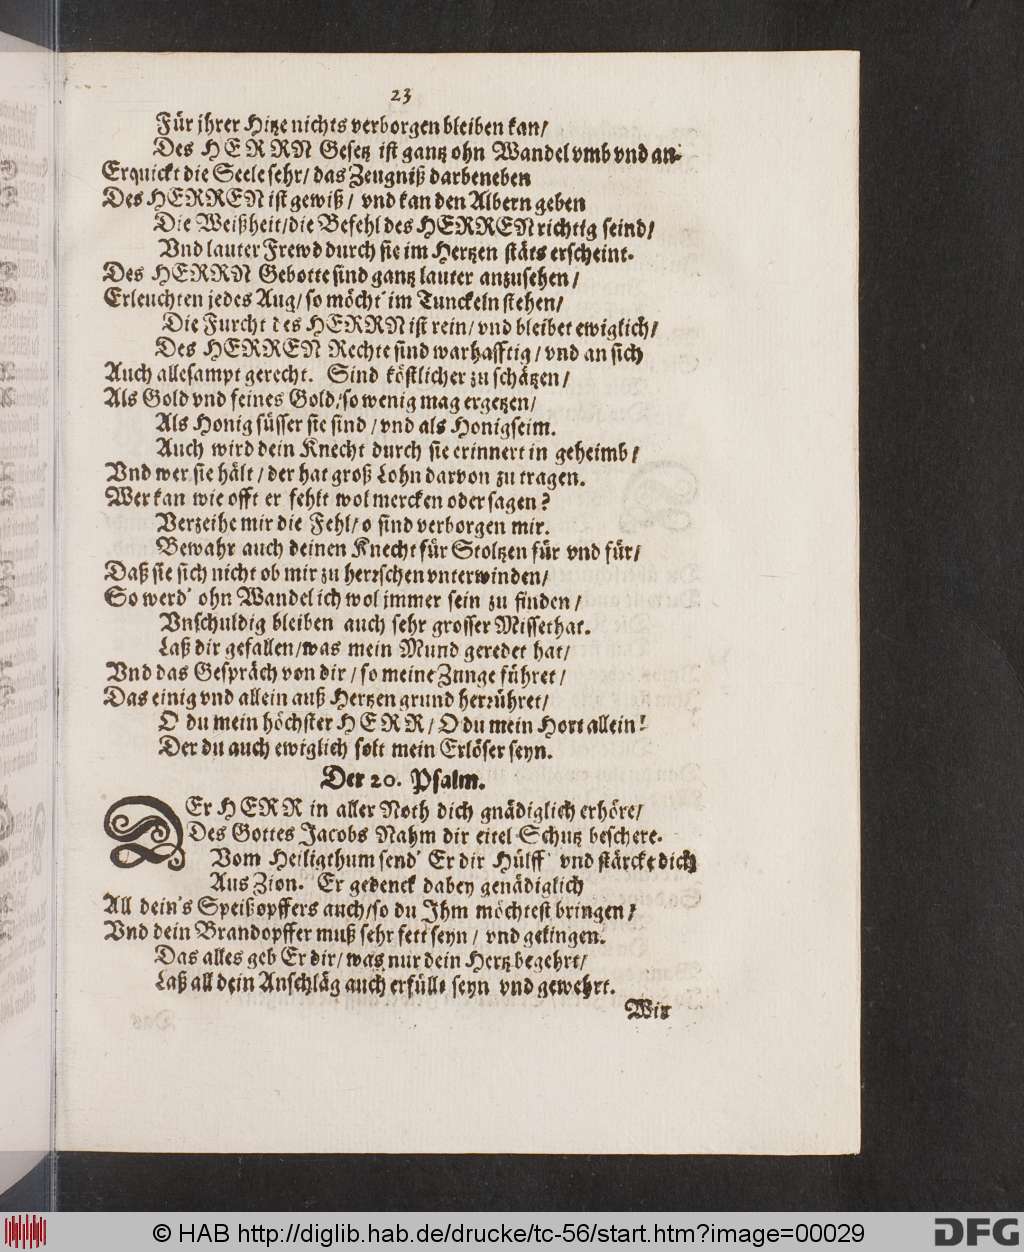 23
Für jhrer Hitze nichts verborgen bleiben kan/
Des HERRN Gesetz ist gantz ohn Wandel vmb vnd an.
Erquickt die Seele sehr/ das Zeugniß darbeneben
Des HERREN ist gewiß/ vnd kan den Albern geben
Die Weißheit/die Befehl des HERREN richtig seind/
Vnd lauter Frewd durch sie im Hertzen stäts erscheint.
Des HERRN Gebotte sind gantz lauter anzusehen/
Erleuchten jedes Aug/ so möcht' im Tunckeln stehen/
Die Furcht des HERRN ist rein/ vnd bleibet ewiglich/
Des HERREN Rechte sind warhafftig/ vnd an sich
Auch allesampt gerecht. Sind köstlicher zu schätzen/
Als Gold vnd feines Gold/so wenig mag ergetzen/
Als Honig süsser sie sind/ vnd als Honigseim.
Auch wird dein Knecht durch sie erinnert in geheimb/
Vnd wer sie hält/ der hat groß Lohn darvon zu tragen.
Wer kan wie offt er fehlt wol mercken oder sagen?
Verzeihe mir die Fehl/o sind verborgen mir.
Bewahr auch deinen Knecht für Stoltzen für vnd für/
Daß sie sich nicht ob mir zu herrschen vnterwinden/
So werd' ohn Wandel ich wol jmmer sein zu finden/
Vnschuldig bleiben auch sehr grosser Missethat.
Laß dir gefallen/was mein Mund geredet hat/
Vnd das Gespräch von dir/ so meine Zunge führet/
Das einig vnd allein auß Hertzen grund herrühret/
O du mein höchster HERR/ O du mein Hort allein!
Der du auch ewiglich solt mein Erlöser seyn.
Der 20. Psalm.
DEr HERR in aller Noth dich gnädiglich erhöre/
Des Gottes Jacobs Nahm dir eitel Schutz beschere.
Vom Heiligthum send' Er dir Hülff' vnd stärcke dich
Aus Zion. Er gedenck dabey genädiglich
All dein's Speißopffers auch/so du Ihm möchtest bringen/
Vnd dein Brandopffer muß sehr fett seyn/ vnd gelingen.
Das alles geb Er dir/ was nur dein Hertz begehrt/
Laß all dein Anschläg auch erfüllt seyn vnd gewehrt.
Wir
© HAB http://diglib.hab.de/drucke/tc-56/start.htm?image=00029
DFG